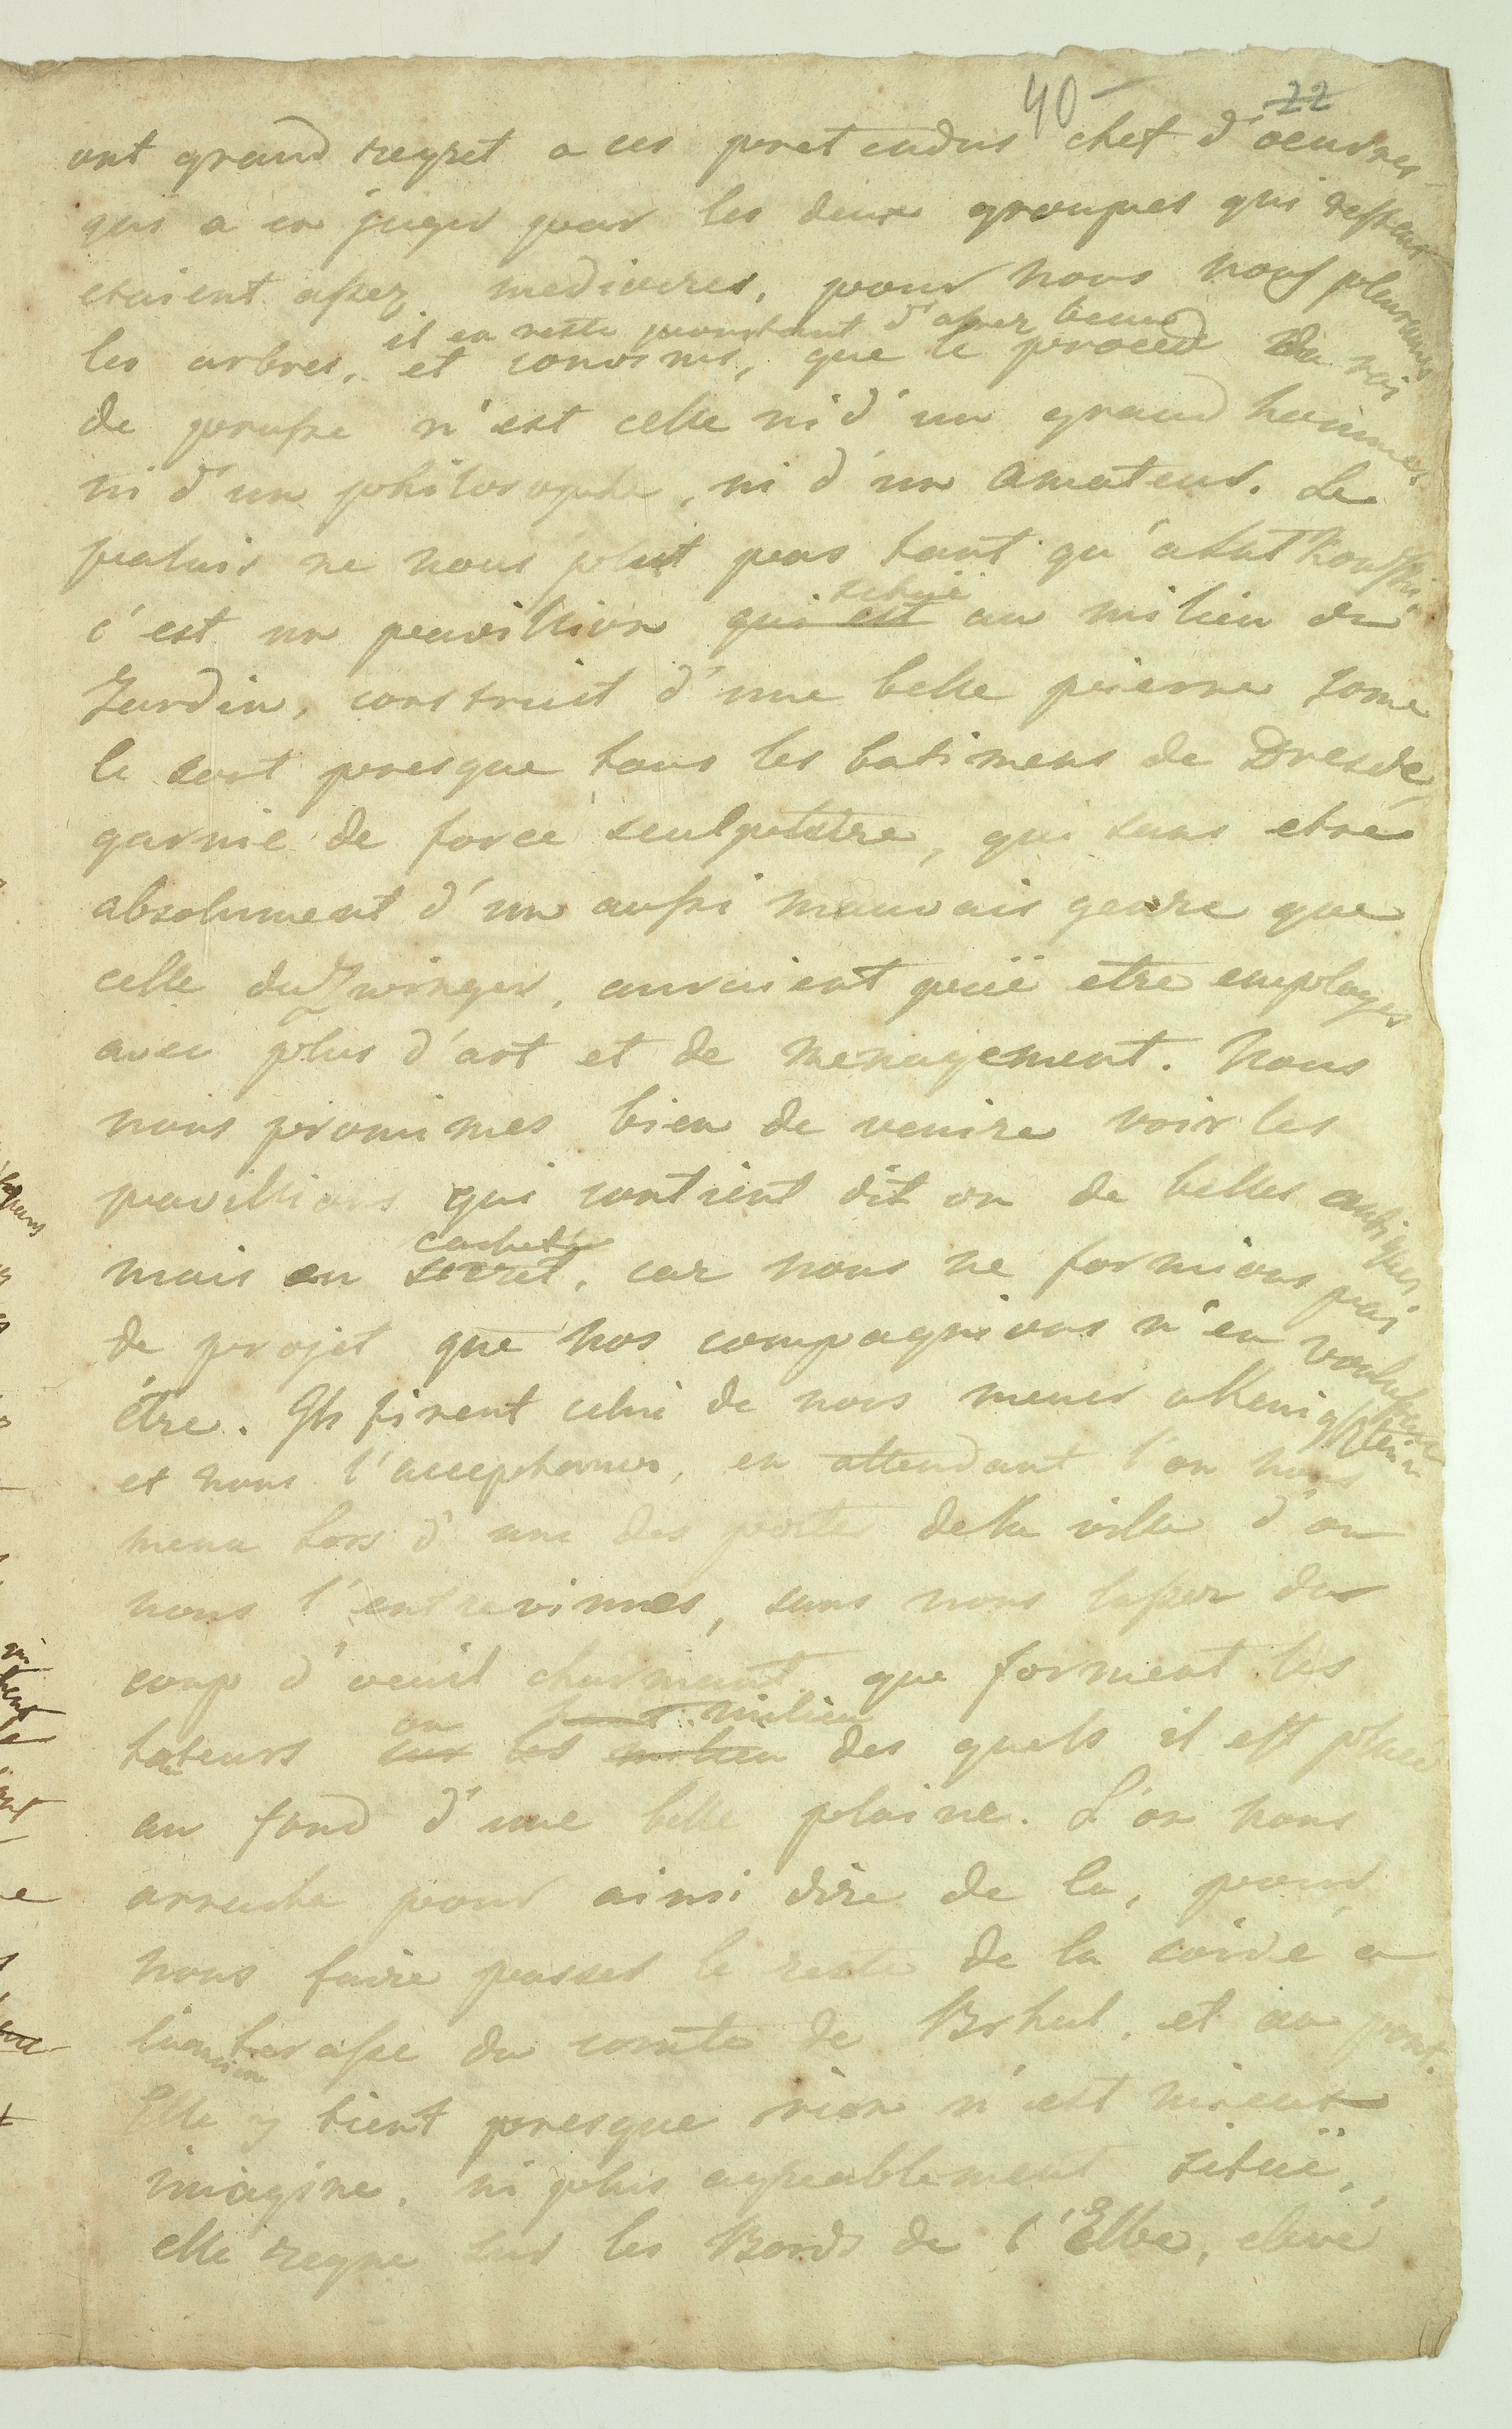 40 22
ont grand regret a ces pretendus chef d'oeuvres
qui a en juger par les deux groupes qui restent
etaient assez mediocres, pour nous nous pleurames
il en reste pourtant d'assez beau
les arbres, et convinmes, que le procedé du roi
de prusse n'est celle ni d'un grand hommes
ni d'un philosophe, ni d'un amateur. Le
palais ne nous plut pas tant qu'a
situé
c'est un pavillion qui est au milieu du
Jardin, construit d'une belle pierre come
le sont presque tous les batimens de Dresde,
garnie de force sculpture, qui sans etre
absolument d'un aussi mauvais genre que
celle du Zwinger, auraient puë etre employes
avec plus d'art et de menagement. Nous
nous promimes bien de venire voir les
pavillions qui contient dit on de belles antiques
cachette
mais en secret, car nous ne formions pas
de projet que nos compagnions n'en voulussent
être. Ils firent celui de nous mener a Kenigstein
et nous l'acceptames, en attendant l'on nous
mena hors d'une des portes de la ville d'ou
nous l'entrevimes, sans nous lasser du
coup d'oeuil charmant que forment les
au haut milieu
hauteurs sur les milieu des quels il est placé
au fond d'une belle plaine. L'on nous
arracha pour ainsi dire de la, pour
nous faire passer le reste de la soiré a
l'ancien terasse du comte de Brhul, et au pont.
Elle y tient presque rien n'est mieux
imagine, ni plus agreablement situë,
elle regne sur les Bords de l'Elbe, elevé